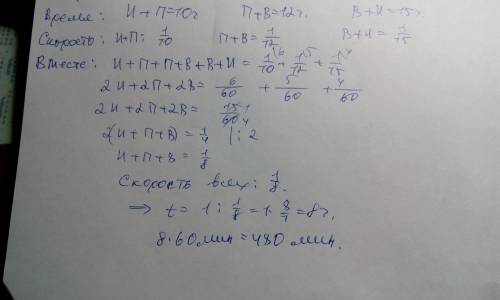 Время: И+П=10ч П+В=12ч. В+И=15ч.
Скорость: И+П: 1/10 П+В=1/12 В+И=1/15
Вместе: И+П+П+В+В+И=1/10⁶+1/12⁵+1/15⁴
2И+2П+2В=6/60+5/60+4/60
2И+2П+2В=15/60 1/4
2(И+П+В)=1/4 |:2
И+П+В=1/8
Скорость всех: 1/8.
⇒ t=1:1/8=1·8/1=8ч.
8·60мин=480мин.